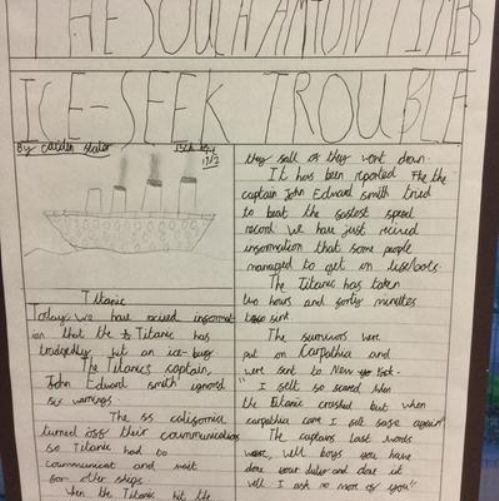 THE SOUTHAMTON TIMES
ICE-SEEK TROUBLE
By caiden slater 15th
1912
Titanic
Today we have recived informat
ion that the Titanic has
tradgedley hit an ice-burg
The Titanics captain,
John Edward smith ignord
six warnings.
The ss california
turned off their coummunication
so Titanic had to
coummunicat and wait
for other ships
When the Titanic hit the
they sall of they went down.
It has been reported the
captain John Edward smith tried
to beat the fastest speed
record we have just recived
information that some people
managed to get on lifeboats.
The Titanic has taken
two hours and forty minuttes
to sink
The survivors were
put on Carpathia and
were sent to New York.
"I felt so scared when
the titanic crashed but when
carpathia came I felt safe again"
The captains last words
were, well boys you have
done your duter and done it
well I ask no more of you"